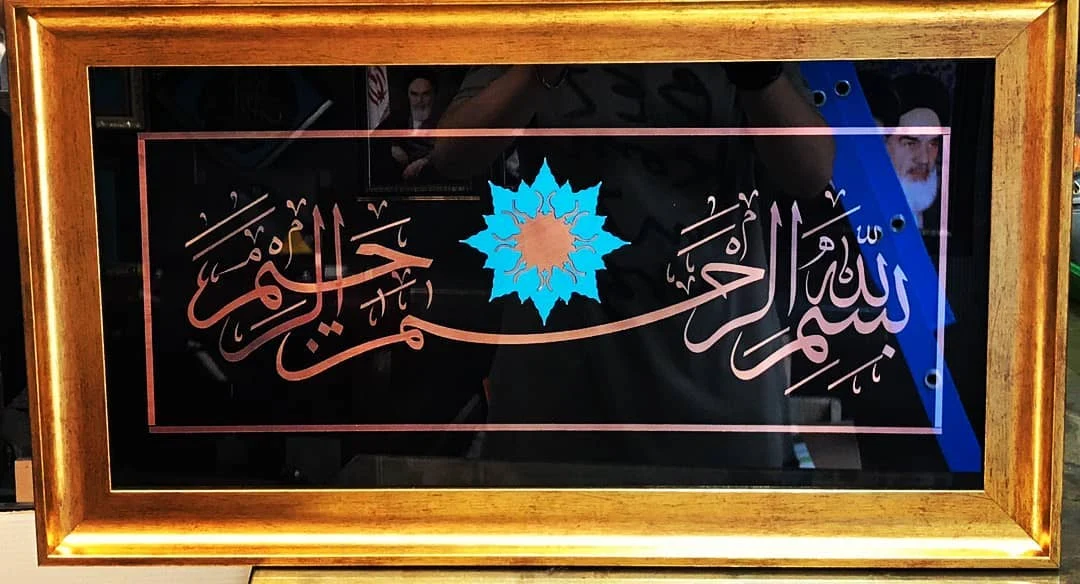 بِسْمِ اللّٰهِ الرَّحْمٰنِ الرَّحِیْمِ